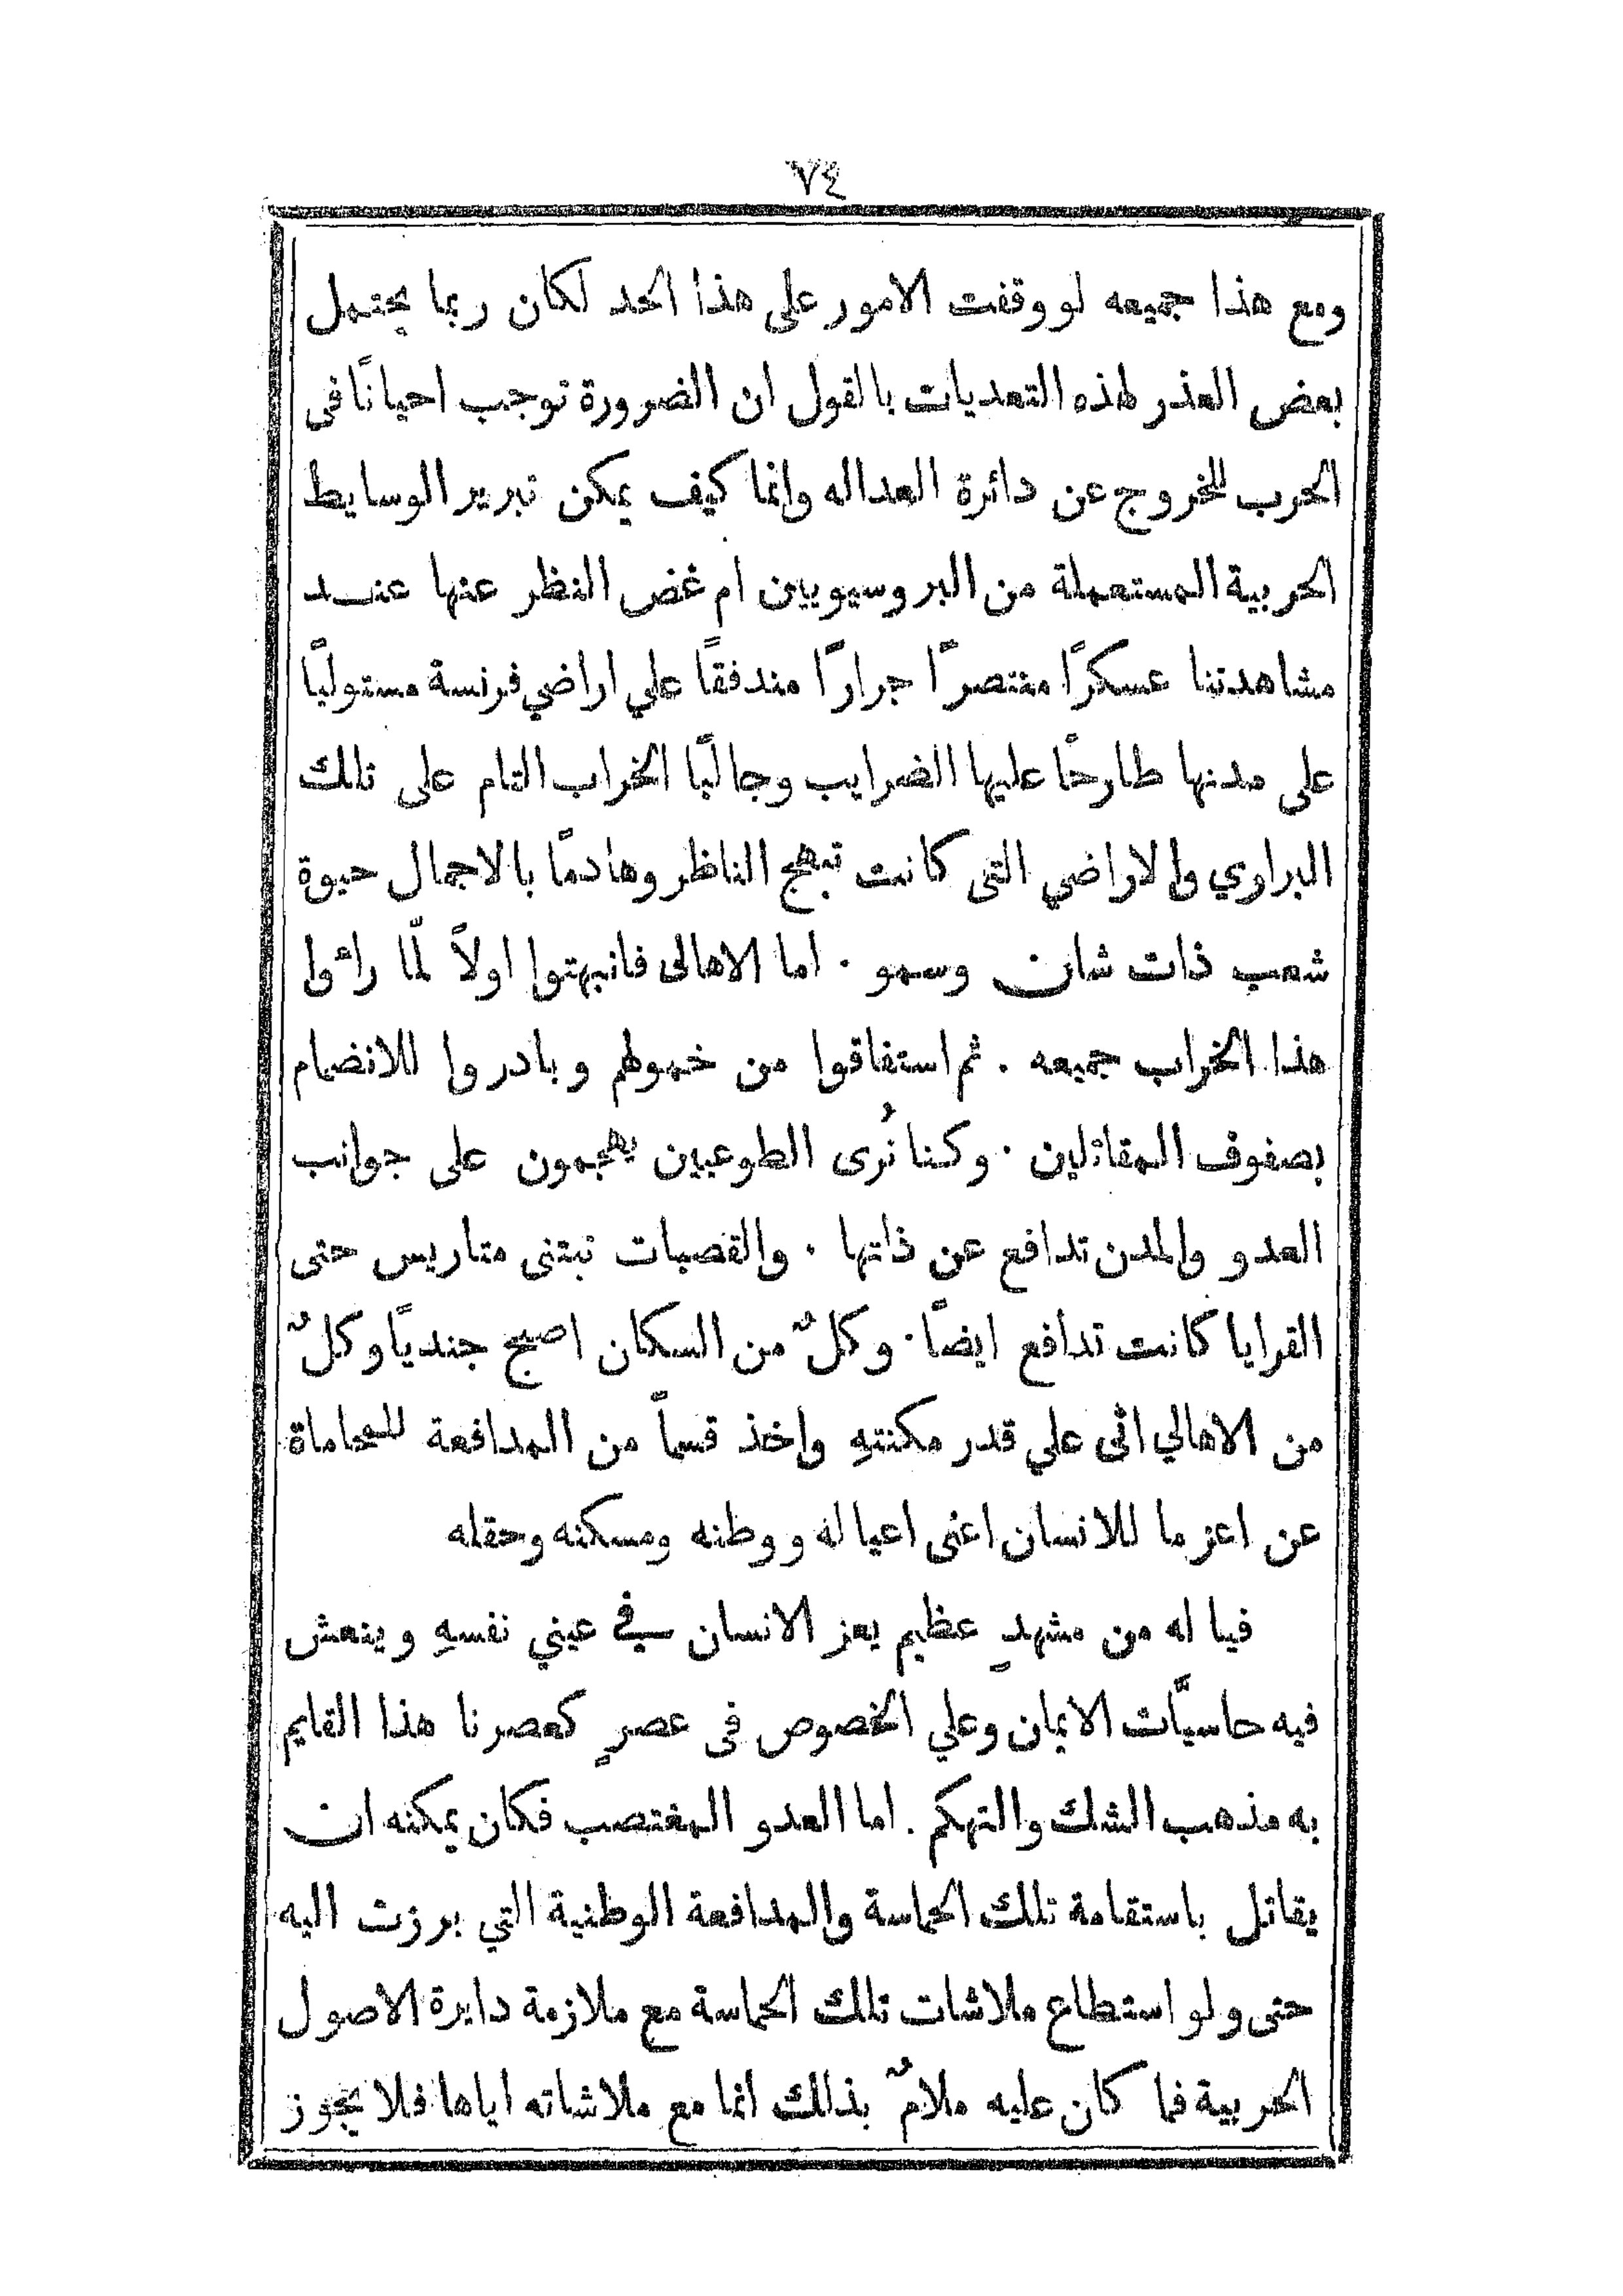 ٧٤
ومع هذا جميعه لو وقفت الامور على هذا الحد لكان ربما يحتمل
بعض العذر لهذه التعديات بالقول ان الضرورة توجب احيانًا فى
الحرب للخروج عن دائرة العداله وانما كيف يمكن تبرير الوسايط
الحربية المستعملة من البروسيويين ام غض النظر عنها عند
مشاهدتنا عسكرًا منتصرًا جرارًا مندفقًا علي اراضي فرنسة مستوليًا
على مدنها طارحًا عليها الضرايب وجالبًا الخراب التام على تلك
البراري والاراضي التى كانت تبهج الناظر وهادمًا بالاجمال حيوة
شعب ذات شان وسمو . اما الاهالى فانبهتوا اولاً لمّا رأوا
هذا الخراب جميعه . ثم استفاقوا من خمولهم وبادروا للانضمام
بصفوف المقاتلين . وكنا نُرى الطوعيين يهجمون على جوانب
العدو والمدن تدافع عن ذاتها . والقصبات تبتنى متاريس حتى
القرايا كانت تدافع ايضًا . وكلٌ من السكان اصبح جنديًا وكلٌ
من الاهالي اتى علي قدر مكنتهِ واخذ قسماً من المدافعة للمحاماة
عن اعز ما للانسان اعنى اعياله ووطنه ومسكنه وحقله
فيا له من مشهدٍ عظيم يعز الانسان في عيني نفسهِ وينعش
فيه حاسيّات الايمان وعلي الخصوص فى عصرٍ كعصرنا هذا القايم
به مذهب الشك والتهكم . اما العدو المغتصب فكان يمكنه ان
يقاتل باستقامة تلك الحماسة والمدافعة الوطنية التي برزت اليه
حتى ولو استطاع ملاشات تلك الحماسة مع ملازمة دايرة الاصول
الحربية فما كان عليه ملامٌ بذلك انما مع ملاشاته اياها فلا يجوز